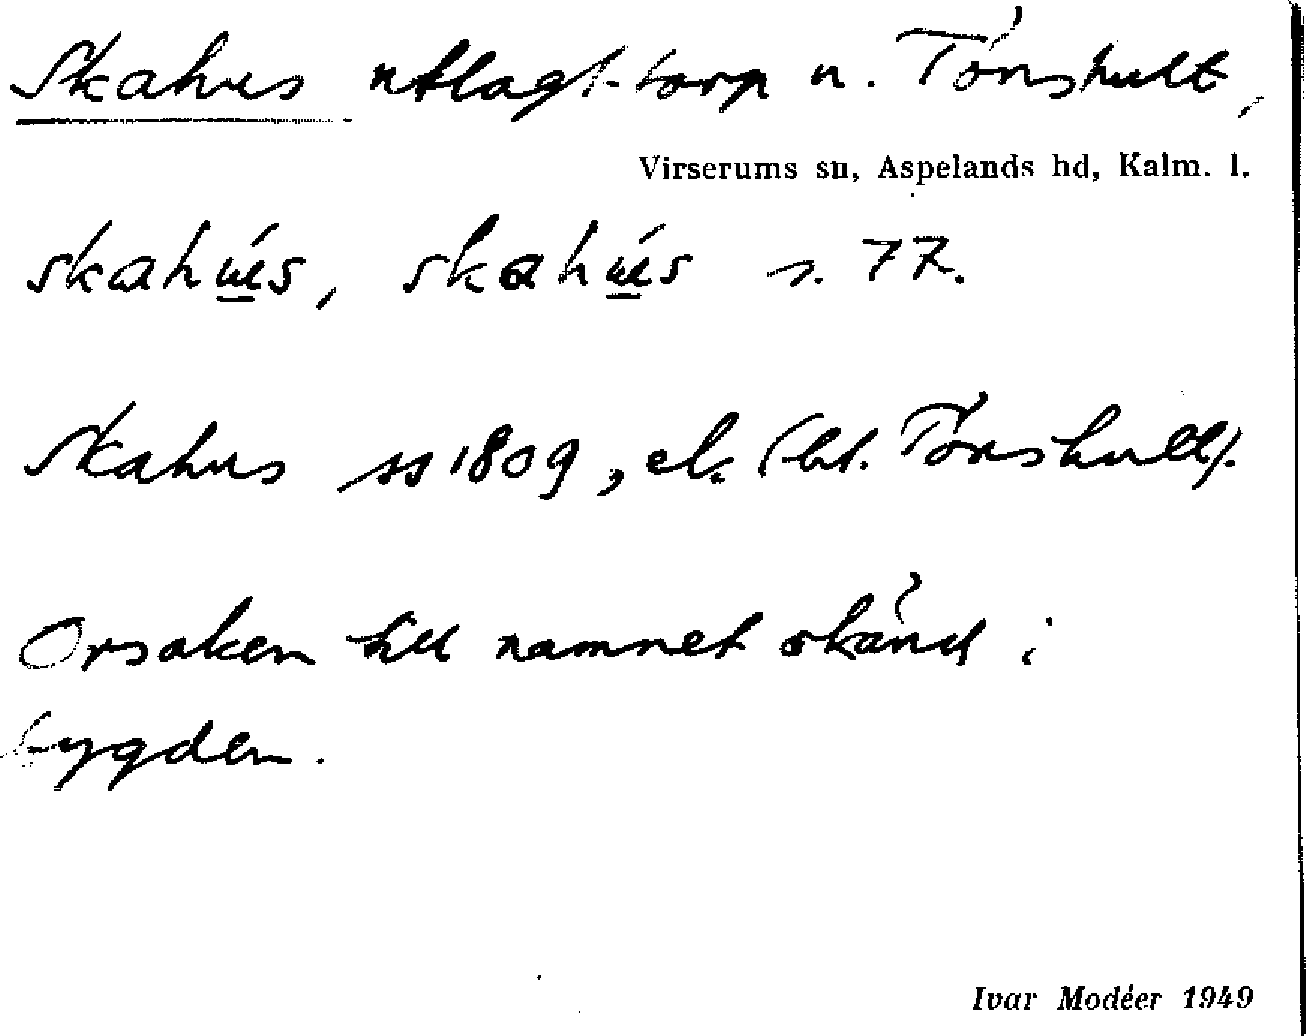 Skahus utlagt torp u. Tönshult,
Virserums sn, Aspelands hd, Kalm. l.
skahú̲s, skahú̲s s. 77.
Skahus ss 1809, el. (bl. Tönshult).
Orsaken till namnet okänd i
bygden.
Ivar Modéer 1949